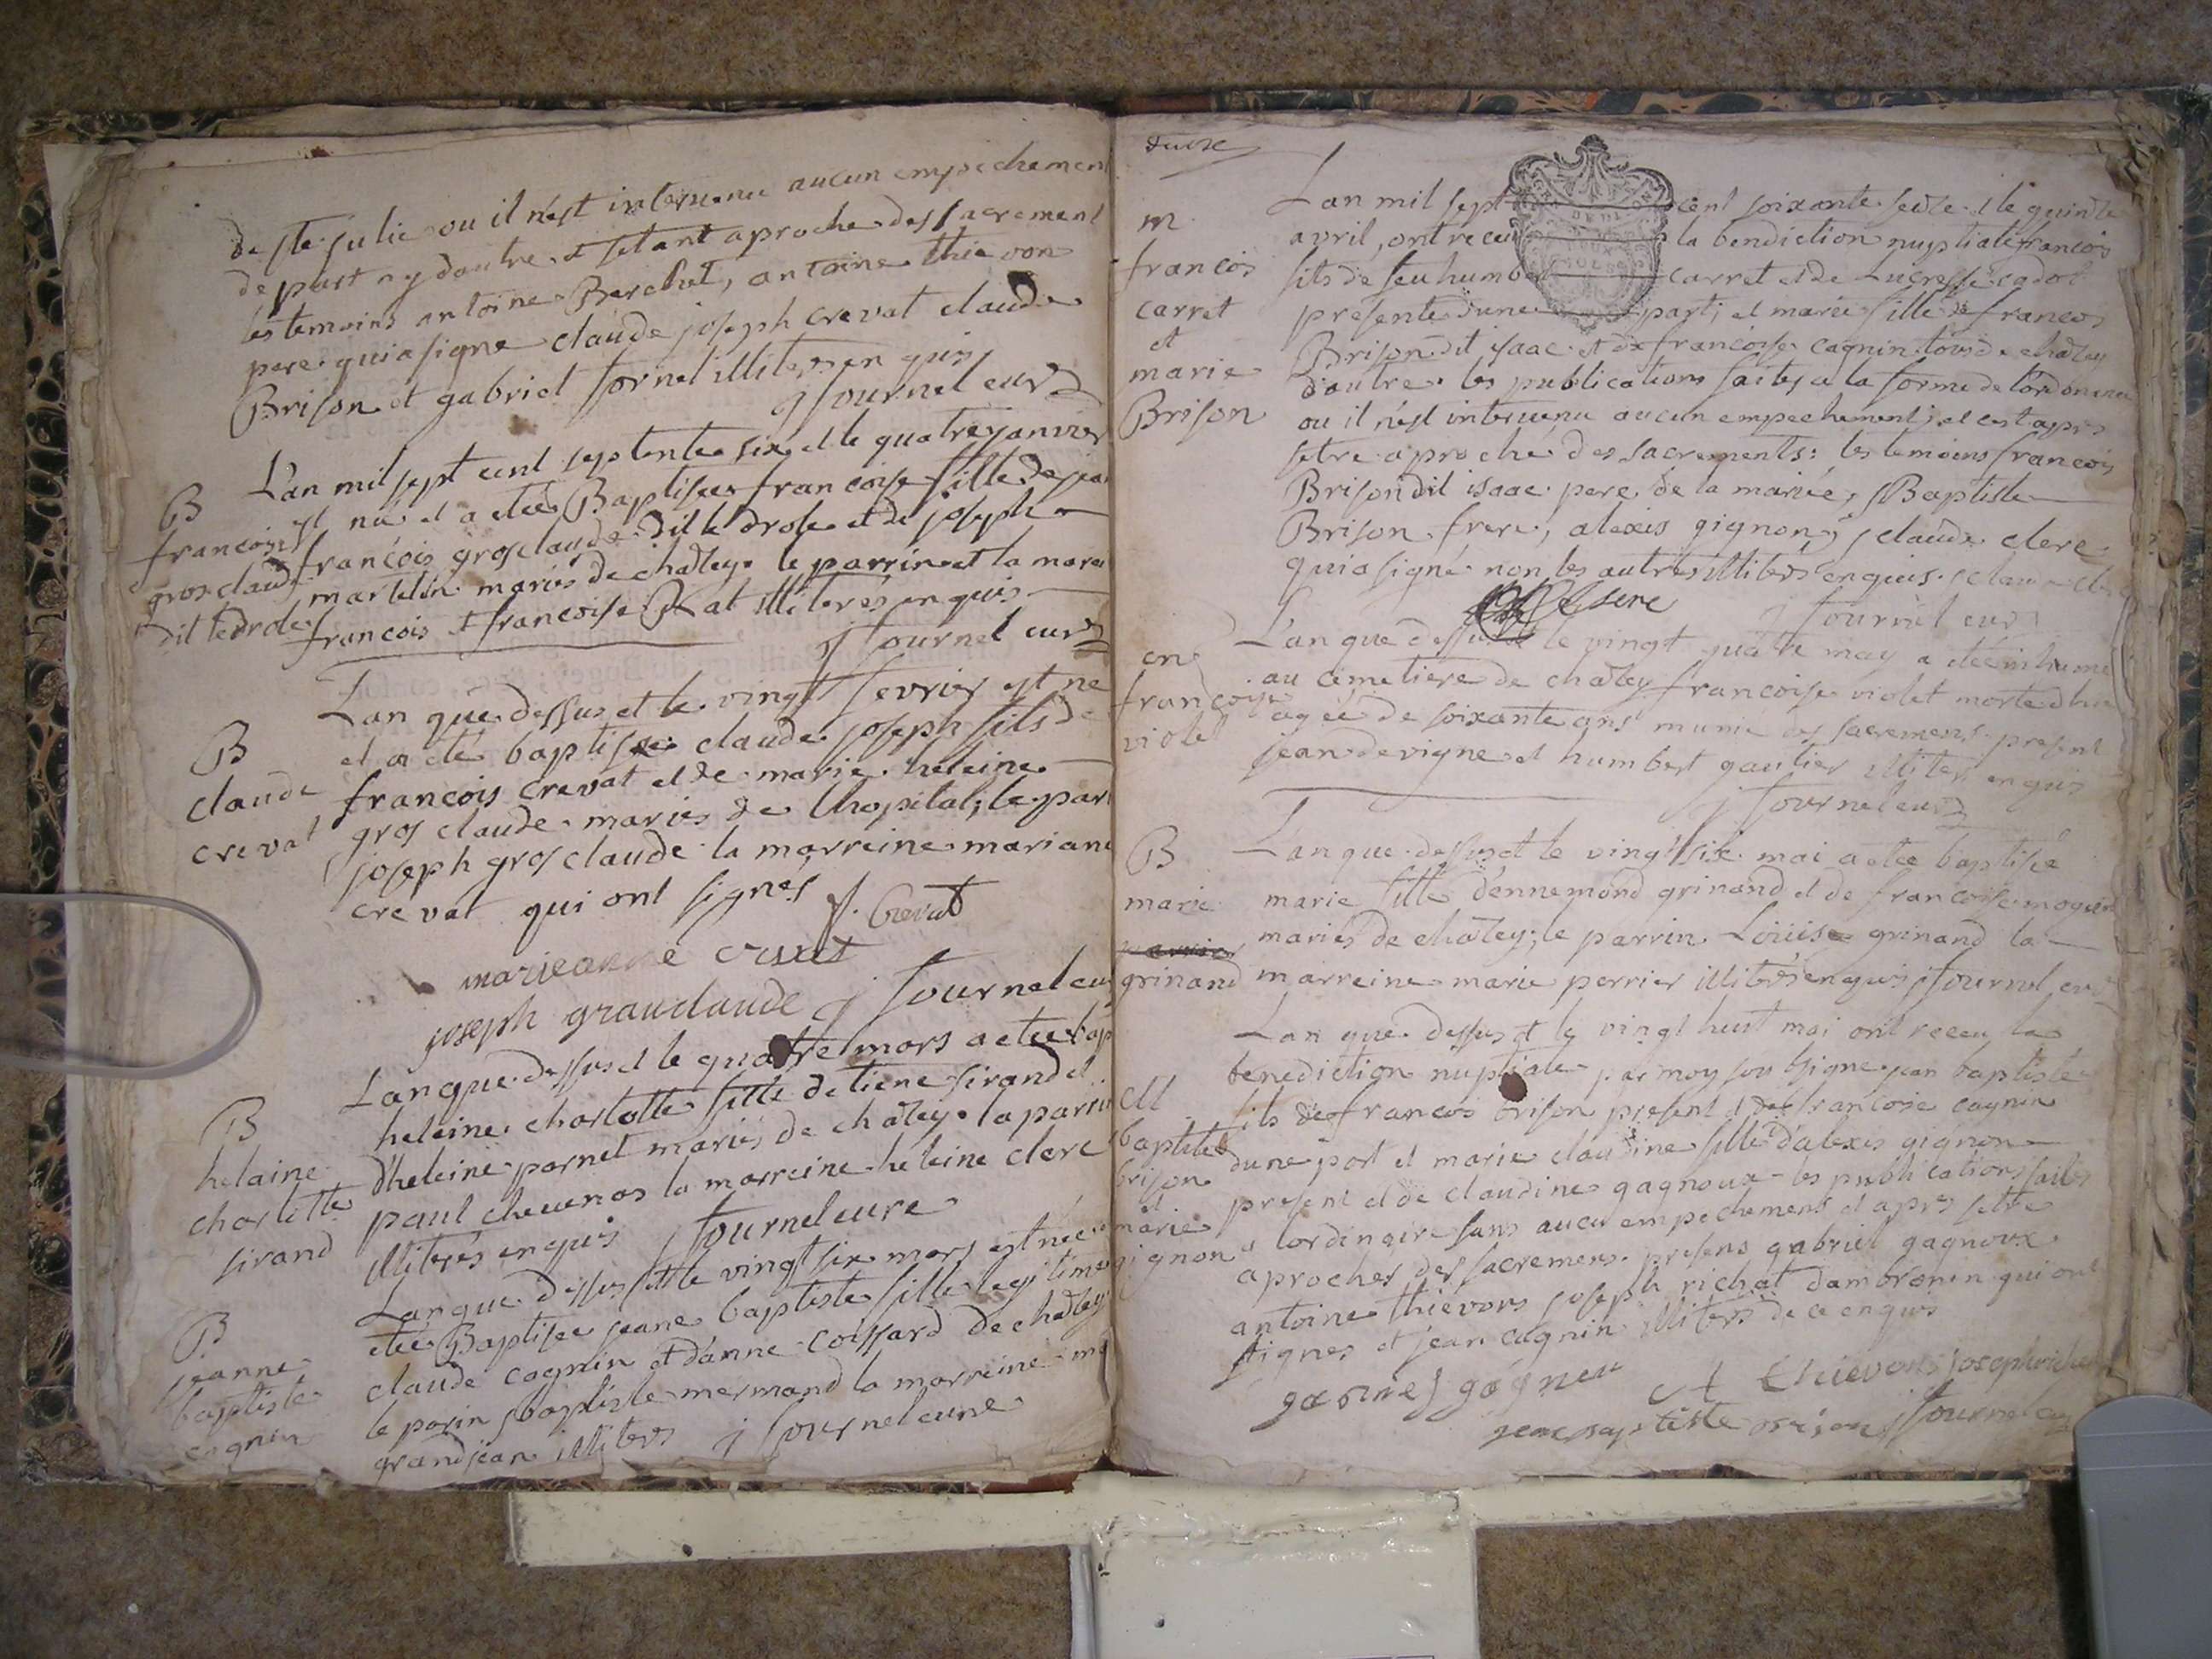 de ste julie ou il n'est intervenu aucun empechement
de part ny d'autre et s'etant aproche des sacrement
les temoins antoine Berchet, antoine thievon
pere qui a signe claude joseph crevat claude
Brison et gabriel fornel illiteres enquis
j fournel curé
B
francoise
grosclaude
dit le drole
L'an mil sept cent septente six et le quatre janvier
est née et a étée Baptisée francoise fille de jean
françois grosclaude dit le drole et de joseph
martelin mariés de chatey le parrin et la marei
francois et francoise Rat illiterés enquis
j fournel curé
B
claude
crevat
L'an que dessus et le vingt fevrier est ne
et a eté baptisé claude joseph fils de
francois crevat et de marie heleine
gros claude mariés de lhopital, le par
joseph grosclaude la marreine mariane
crevat qui ont signés
f. Crevat
marieanne crevat
joseph grauclaude j fournel cu
B
helaine
charlotte
sirand
L'an que dessus et le quatre mars a etee bap
heleine charlotte fille detiene sirand et
d'heleine parnet mariés de chatey la parrin
paul chevenas la marreine heleine clerc
illiterés enquis j fournel cure
B
jeanne
baptiste
cagnin
L'an que dessus et le vingt six mars est née
etée Baptisée jeane baptiste fille legitime
claude cagnin et d'anne coissard de chatey
le parin jbaptiste mermand la marreine ma
grandjean illiters j fournel cure
duore
m
francois
carret
et
marie
Brison
L'an mil sept cent soixante seose et le quinze
avril, ont receu la benediction nuptiale francois
fils de feu humbert carret et de Lucresse cadot
presente d'une part, et marie fille de francos
Brison dit isaac et de francoise cagnin tous de chatey
d'autre les publications faites a la forme de l'ordonance
ou il n'est intervenu aucun empechement, et cest apres
setre aproché des sacrements: les temoins francois
Brison dit isaac pere de la mariée, jBaptiste
Brison frere, alexis gignon, j claude clerc
qui a signé non les autres illiterés enquis. j claude cle
j fournel curé
en
francoise
violet
L'an que dessus et le vingt quatre may a étée inhumé
au cimetiere de chatey francoise violet morte d'hier
agée de soixante ans munie des sacremens present
jean devigne et humbert gautier illiter enquis
j fournel curé
B
marie
grinand
L'an que dessus et le vingt six mai a étée baptisée
marie fille d'ennemond grinand et de francoise moguin
mariés de chatey; le parrin Louise grinand la
marreine marie perrier illiterés enquis j fournel curé
M
baptiste
brison
et
marie
gignon
L'an que dessus et le vingt huit mai ont receu la
benediction nuptiale par moy soubsigne jean baptiste
fils de francos brison present et de francoise cagnin
d'une part et marie claudine fille d'alexis gignon
present et de claudine gagnoux les publications faites
a lordinaire sans aucun empechement et apres setre
aprochés des sacremens. presens gabriel gagnoux
antoine thievon joseph richat d'ambronin qui ont
signes et jean cagnin illiters de ce enquis
gabriel gagneu A thievon joseph richat
jean baptiste brison j fournel cu